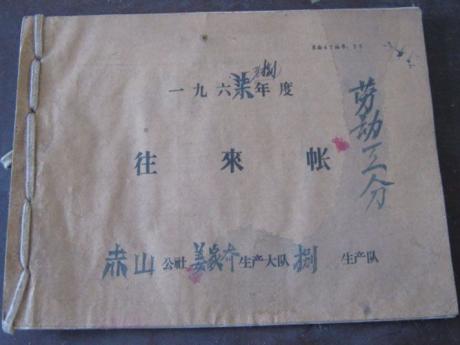 捌
一九六柒年度
往來帐
劳动工分
赤山公社姜家夼生产大队捌生产队